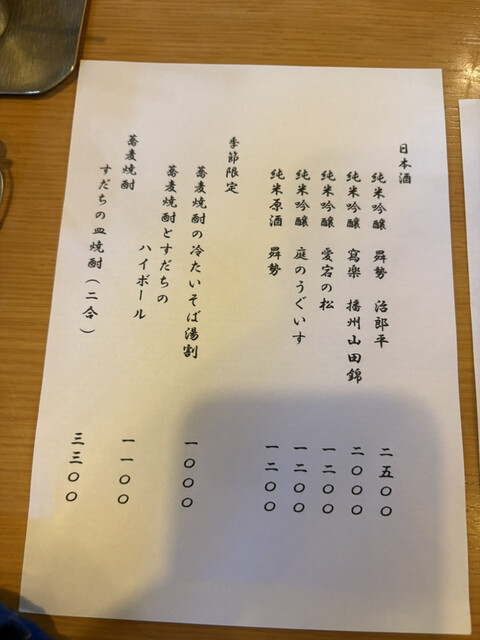 日本酒
純米吟醸 舜勢 治郎平 二五〇〇
純米吟醸 寫樂 播州山田錦 二〇〇〇
純米吟醸 愛宕の松 一二〇〇
純米吟醸 庭のうぐいす 一二〇〇
純米原酒 舜勢 一二〇〇
季節限定
蕎麦焼酎の冷たいそば湯割 一〇〇〇
蕎麦焼酎とすだちの
ハイボール 一一〇〇
蕎麦焼酎
すだちの皿焼酎(二合) 三三〇〇